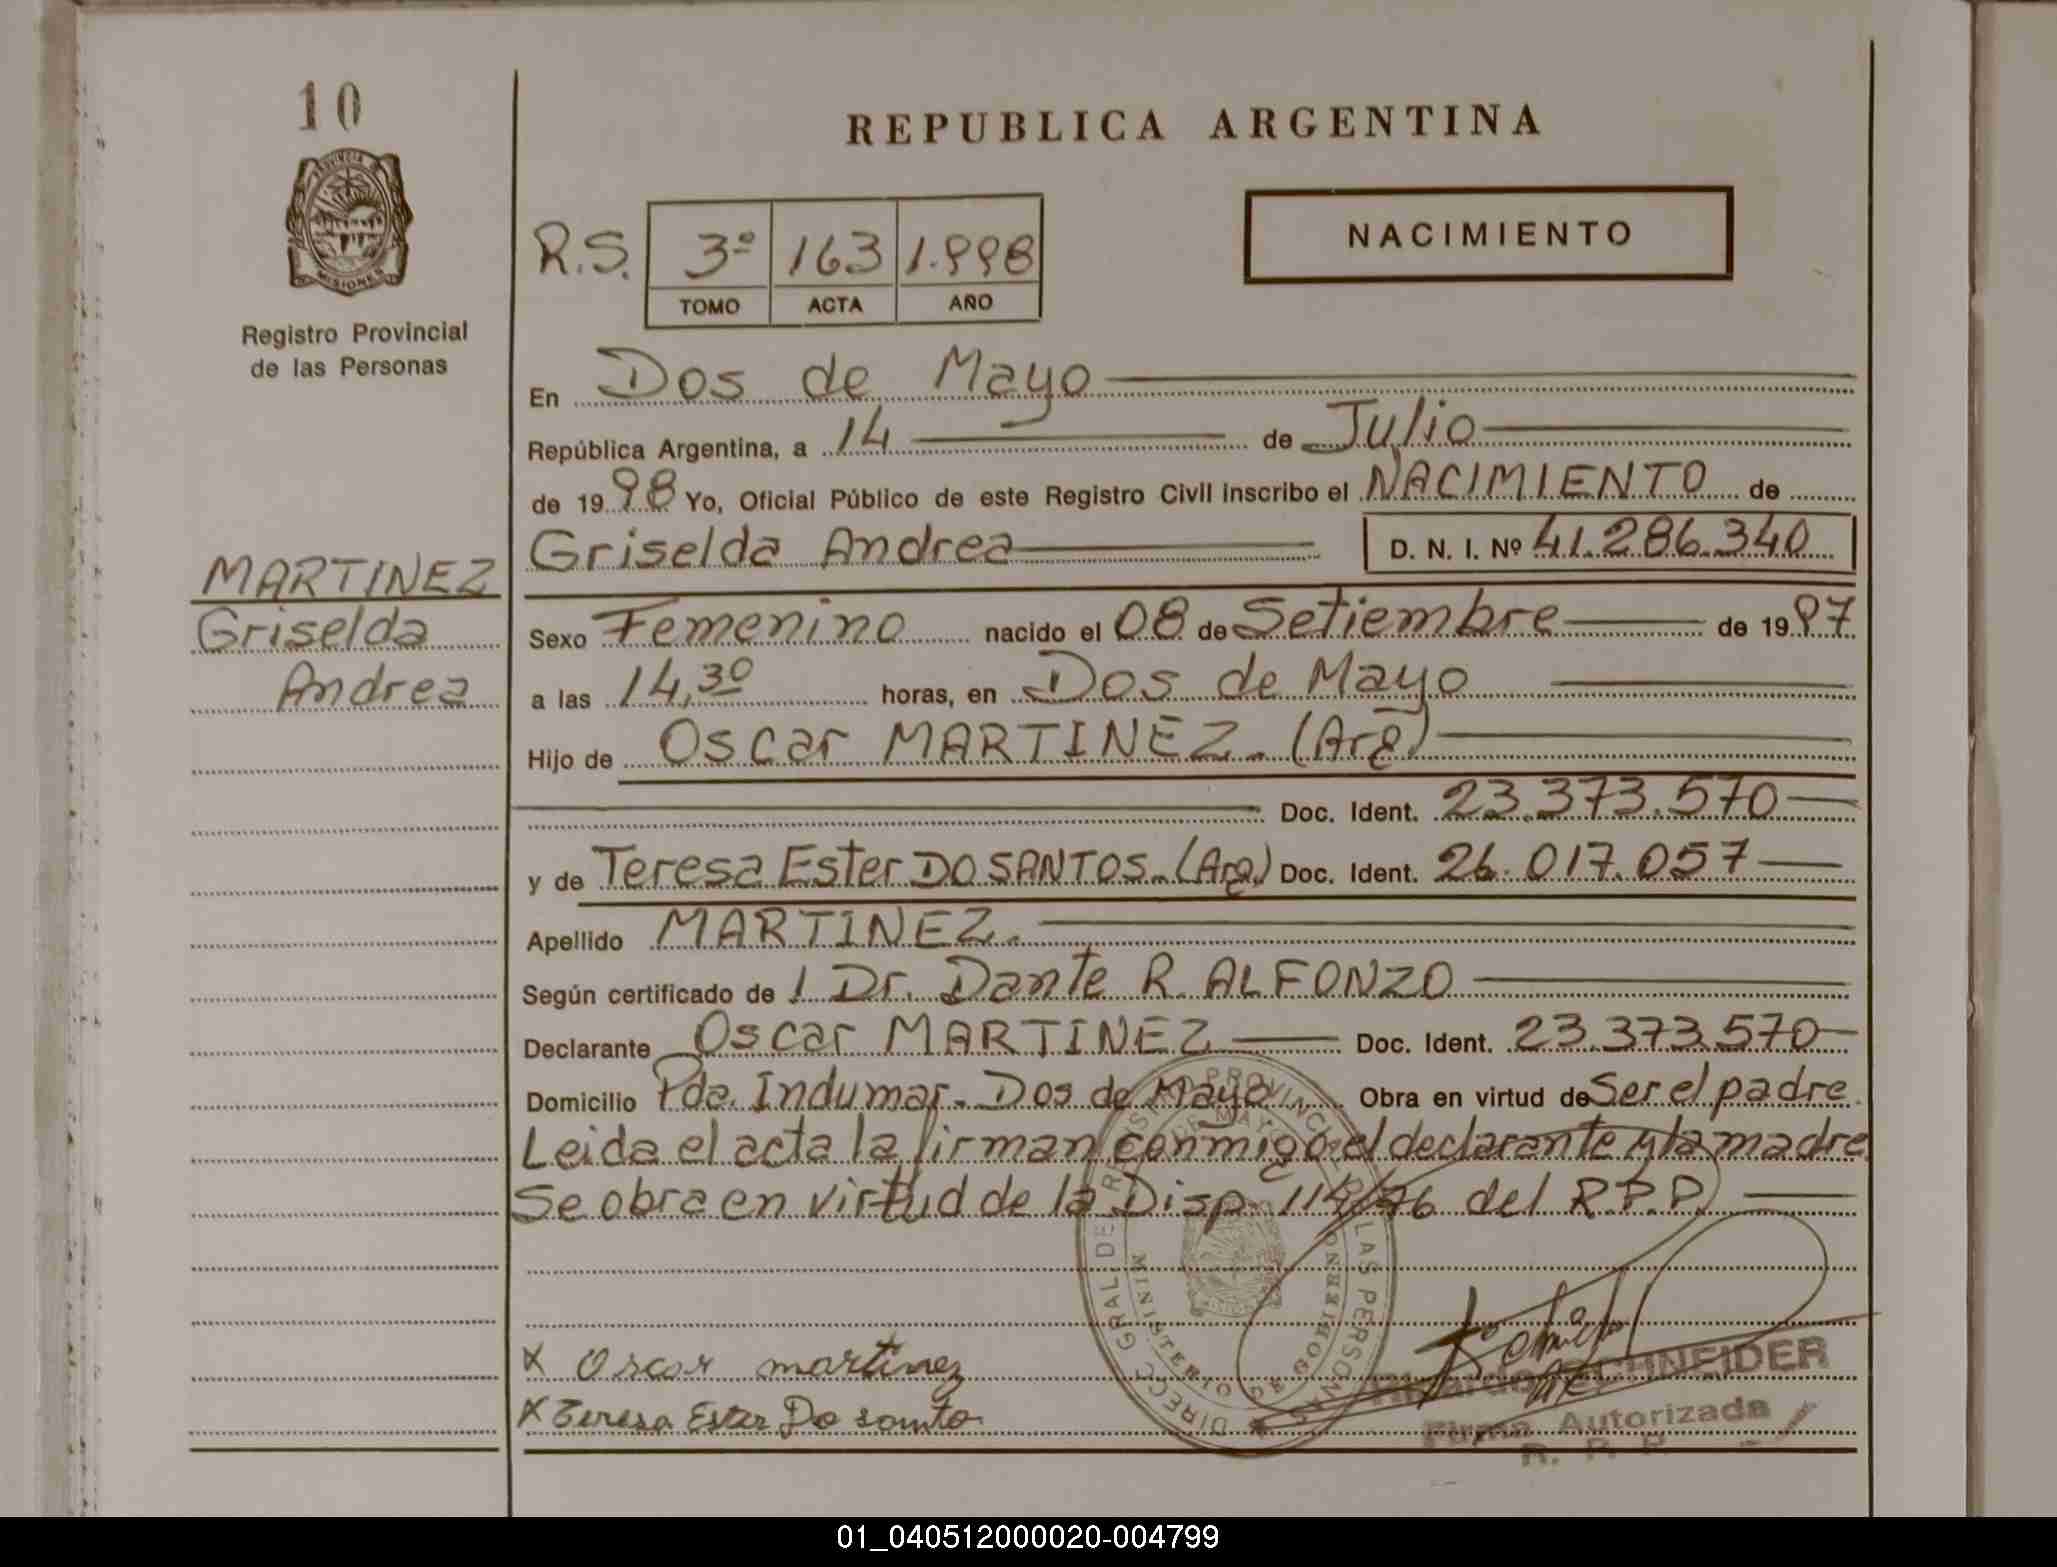 10
REPUBLICA ARGENTINA
PROVINCIA DE
MISIONES
NACIMIENTO
R.S. 3º 163 1.998
TOMO ACTA AÑO
Registro Provincial
de las Personas
En Dos de Mayo
República Argentina, a 14 de Julio
de 1998 Yo, Oficial Público de este Registro Civil inscribo el NACIMIENTO de
Griselda Andrea D. N. I. Nº 41.286.340
MARTINEZ
Griselda
Andrea
Sexo Femenino nacido el 08 de Setiembre de 1997
a las 14,30 horas, en Dos de Mayo
Hijo de Oscar MARTINEZ. (Arg)
Doc. Ident. 23.373.570
y de Teresa Ester DO SANTOS. (Arg.) Doc. Ident. 26.017.057
Apellido MARTINEZ.
Según certificado de 1 Dr. Dante R. ALFONZO
Declarante Oscar MARTINEZ Doc. Ident. 23.373.570
Domicilio Pda. Indumar. Dos de Mayo Obra en virtud de Ser el padre
Leida el acta la firman conmigo el declarante y la madre
Se obra en virtud de la Disp. 114/76 del R.P.P.
X Oscar martinez
X Teresa Ester Do santo
DIRECC. GRAL. DE PROVINCIAL LAS PERSONAS
MINISTERIO DE GOBIERNO
SCHNEIDER
Firma Autorizada
R. P. P.
01_040512000020-004799